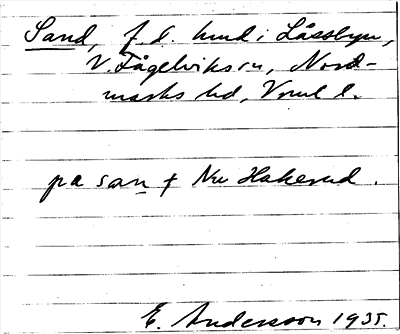 Sand, f.d. lund i Låssbyn,
V. Fågelviks sn, Nord-
marks hd, Vrml l.
på san f Nv Hakerud.
E. Andersson 1935.